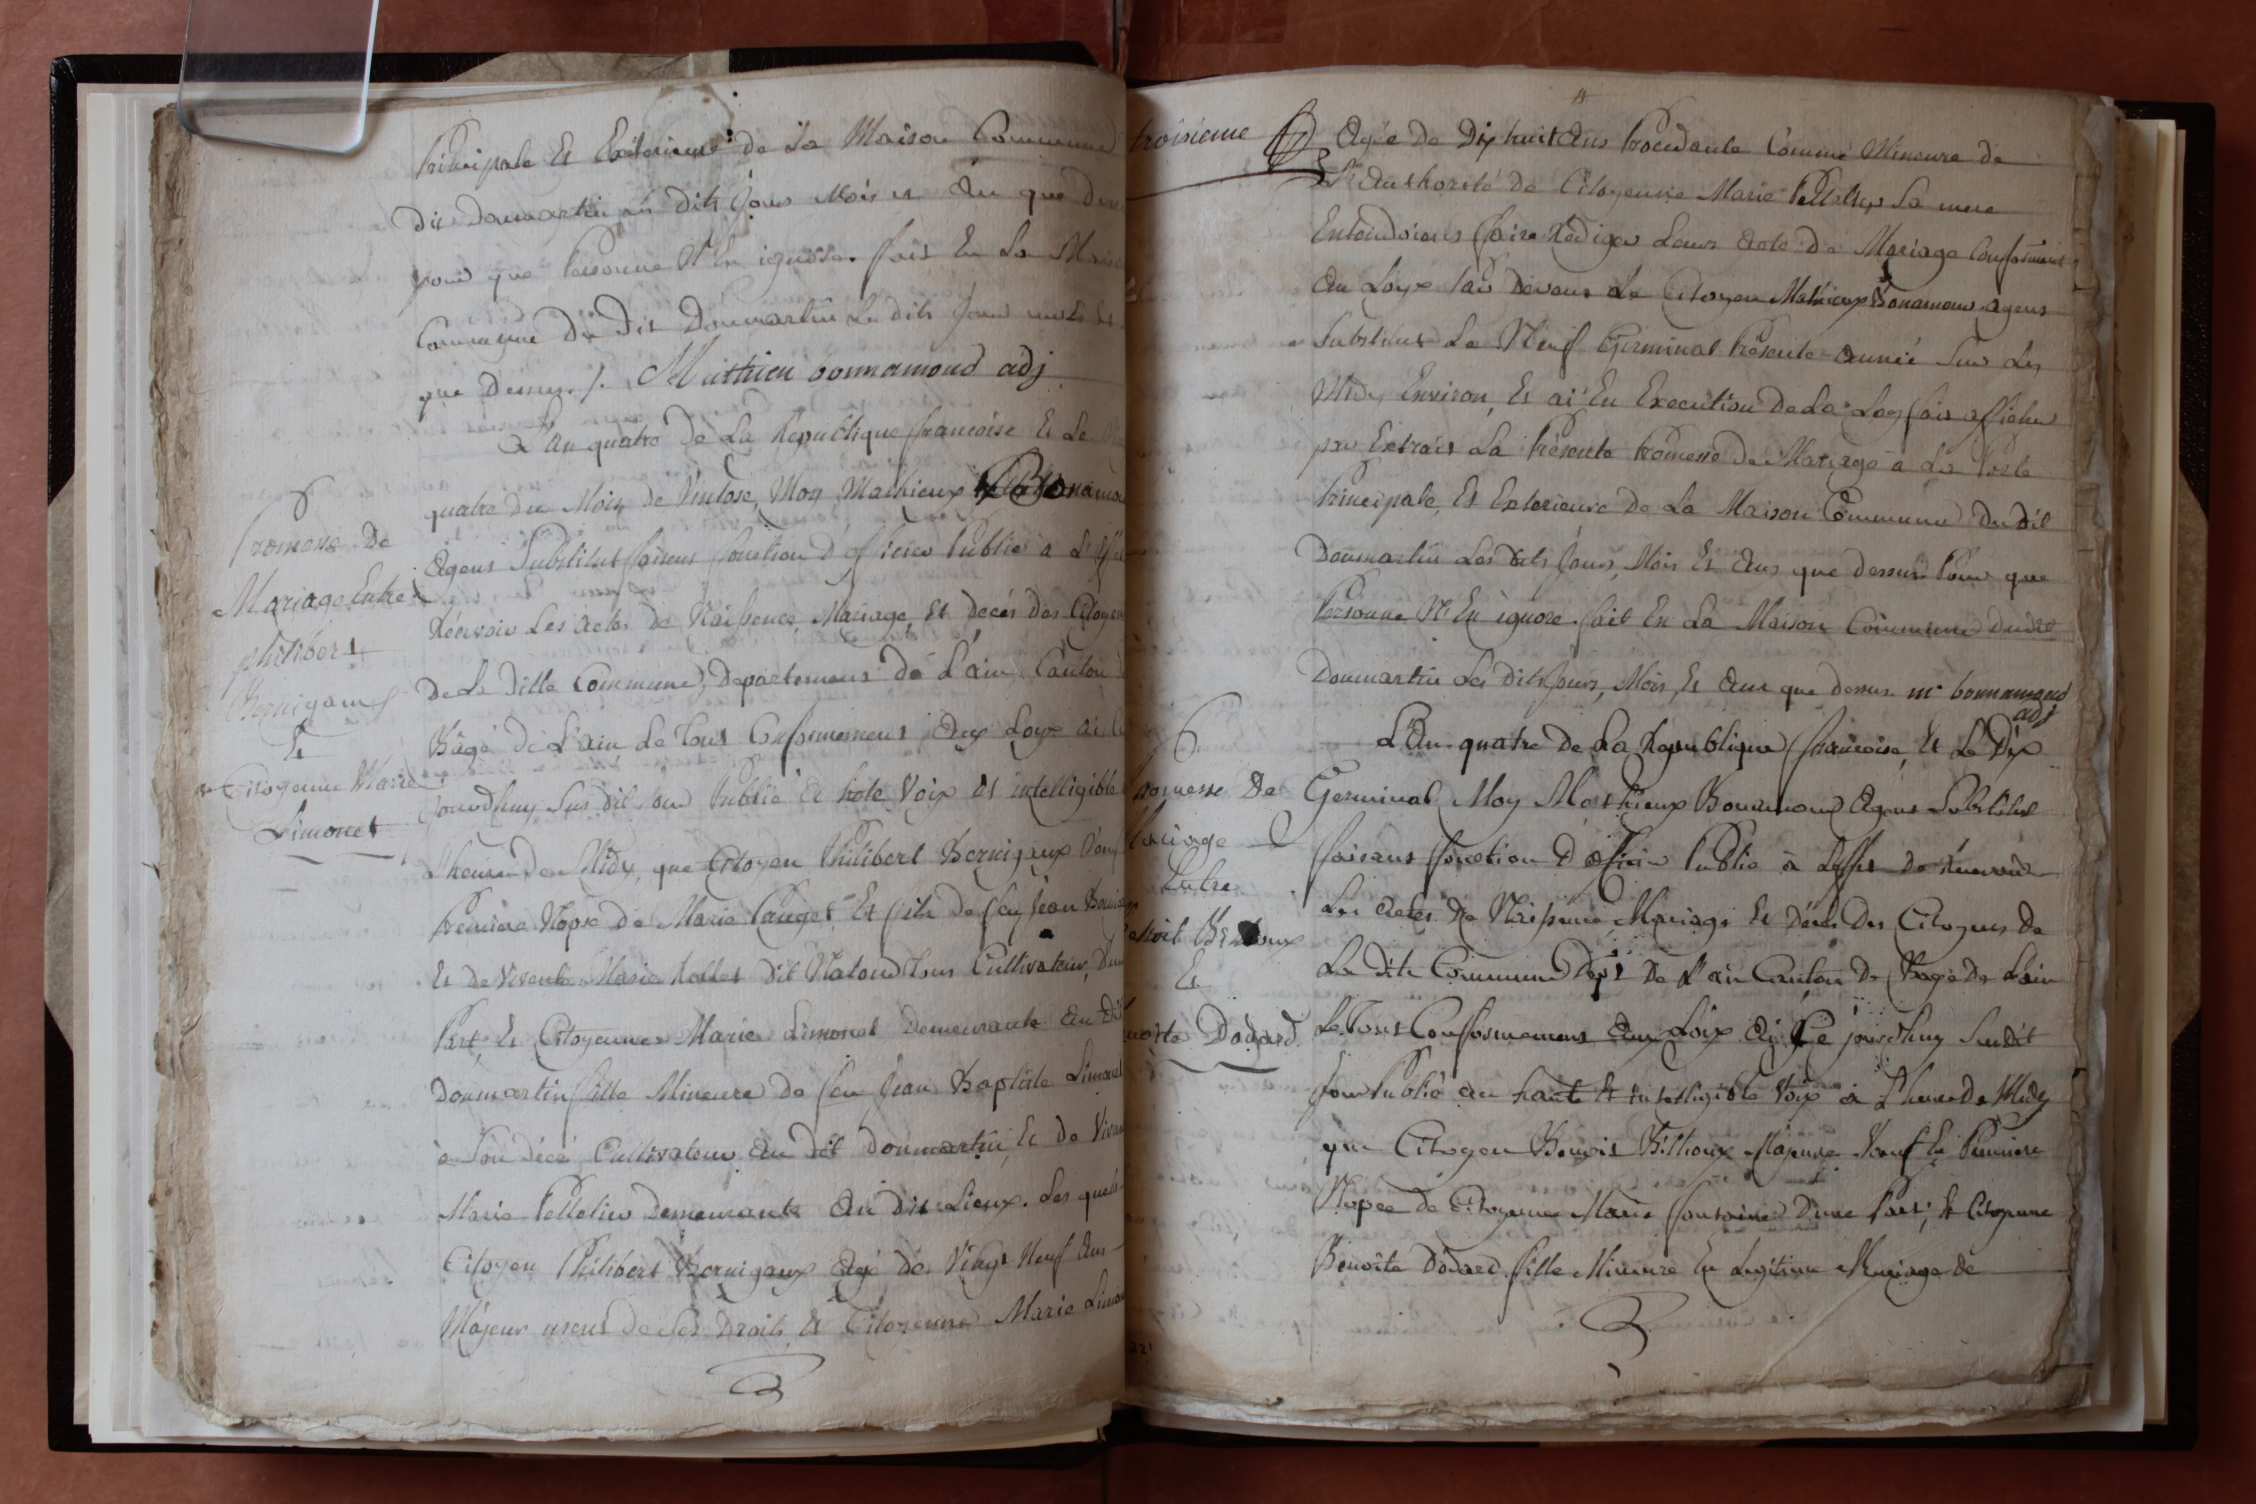 Principale Et Exterieure de La Maison Commune
Dit Donmartin Les dits Jours Mois et An que
pour que Personne N'En ignore. fait En La
Commune Du Dit Donmartin Le dits Jour
que Dessus. /. Mathieu bonnamoud adj
L'An quatre De La Republique francoise Et Le
quatre du Mois de Vintose, Moy Mathieux
Agens Substitut faisens fonction d'officier Public a L'
Récevoir Les Actes De Naissence, Mariage, Et Decés des Citoyen
De La Ditte Commune, Departemens De L'ain Canton
Bâgé De L'ain Le Tout Conformemens Aux Loyx ai
Jourdhuy Sus dit Jour Publié De hote Voix Et intelligible
L'heure De Midy, que Citoyen Philibert Bernigaux
Premiere Nopse de Marie Pauget Et fils De feu Jean
Et De Vivente Marie Tous Cultivateur,
Part, Et Citoyenne Marie Limonet Demeurante Au Dit
Donmartin fille Mineure De feu Jean Baptiste Limonet
à Son décé Cultivateur Au Dit Donmartin, Et De
Marie Pelletier Demeurante Au Dit Lieux. Les quels
Citoyen Philibert Bernigaux Agé de Vingt Neuf Ans
Májeur usent De Ses Droits Et Citoyenne Marie
Promesse De
Mariage Entre
philibert
Bernigaux
Et
Citoyenne Marie
Limonet
troisieme
Agée De Dix huit Ans Procedante Comme Mineure De
L'Authorité De Citoyenne Marie Pelletier Sa mere
Entendoients faire Rediger Leurs Acte De Mariage Conformement
Au Loyx fait Devant Le Citoyen Mathieux Bonamour agens
Substitut Le Neuf Germinal Présente Année Sur Les
Midy Environ, Et ai En Execution De La Loy fait afficher
par Extrait La Présente Promesse De Mariage a La Porte
Principale, Et Exterieure De La Maison Commune Du Dit
Donmartin Les dits Jours, Mois Et Ans que dessus Pour que
Personne N'En ignore. fait En La Maison Commune dudit
Donmartin Les Dits Jours, Mois Et Ans que dessus m. bonnamoud
adj
L'An quatre De La Republique francoise, Et Le Dix
Germinal Moy Mathieux Bonnamoud Agens Substitut
faisans fonction D'officier Public à L'effet De Recevoir
Les Actes De Naissence, Mariage Et Decés Des Citoyens De
La Dite Commune Dept De L'ain Canton De Bagé De L'ain
Le Tout Conformemens Aux Loix Ai Ce jourdhuy Susdit
Jour Publié Au haute Et intelligible Voix à L'heure De Midy
que Citoyen Benoit Billioux Majeure Veuf En Premiere
Nopce De Citoyenne Marie fontaine D'une Part, Et Citoyenne
Benoite Dodard fille Mineure En Legitime Mariage De
Promesse De
Mariage
Entre
Benoit
Et
Dodard